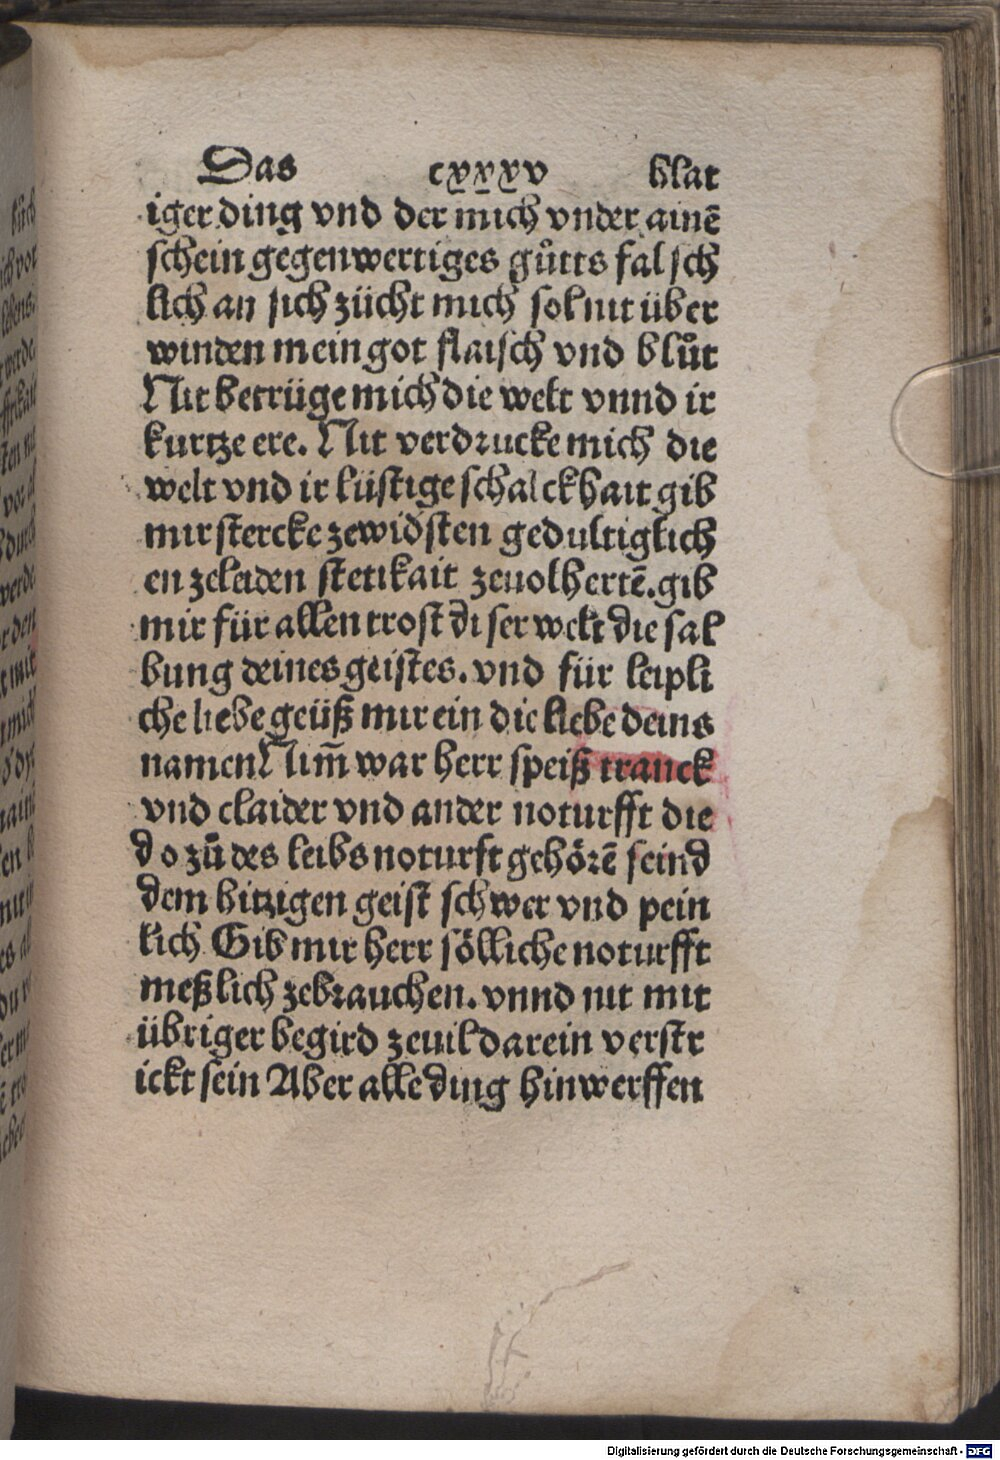 Das cxxxv blat
iger ding vnd der mich vnder ainē
schein gegenwertiges gůtts falsch
lich an sich zücht mich sol nit über
winden mein got flaisch vnd blůt
Nit betrüge mich die welt vnnd ir
kurtze ere. Nit verdrucke mich die
welt vnd ir lüstige schalckhait gib
mir stercke zewidsten gedultiglich
en zeleiden stetikait zeuolhertē. gib
mir für allen trost diser welt die sal
bung deines geistes. vnd für leipli
che liebe geüß mir ein die liebe deins
namen Nim̄ war herr speiß tranck
vnd claider vnd ander noturfft die
do zů des leibs noturft gehörē seind
dem hitzigen geist schwer vnd pein
lich Gib mir herr sölliche noturfft
meßlich zebrauchen. vnnd nit mit
übriger begird zeuil darein verstr
ickt sein Aber alle ding hinwerffen
Digitalisierung gefördert durch die Deutsche Forschungsgemeinschaft - DFG